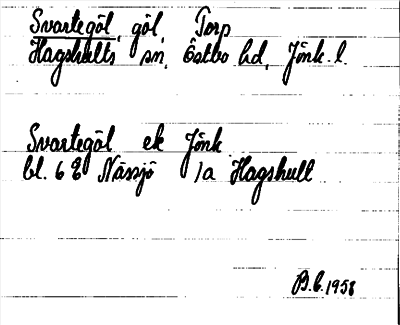 Svartegöl, göl, Torp
Hagshults sn, Östbo hd, Jönk. l.
Svartegöl ek Jönk
bl. 6 E Nässjö 1a Hagshult
B.E. 1958